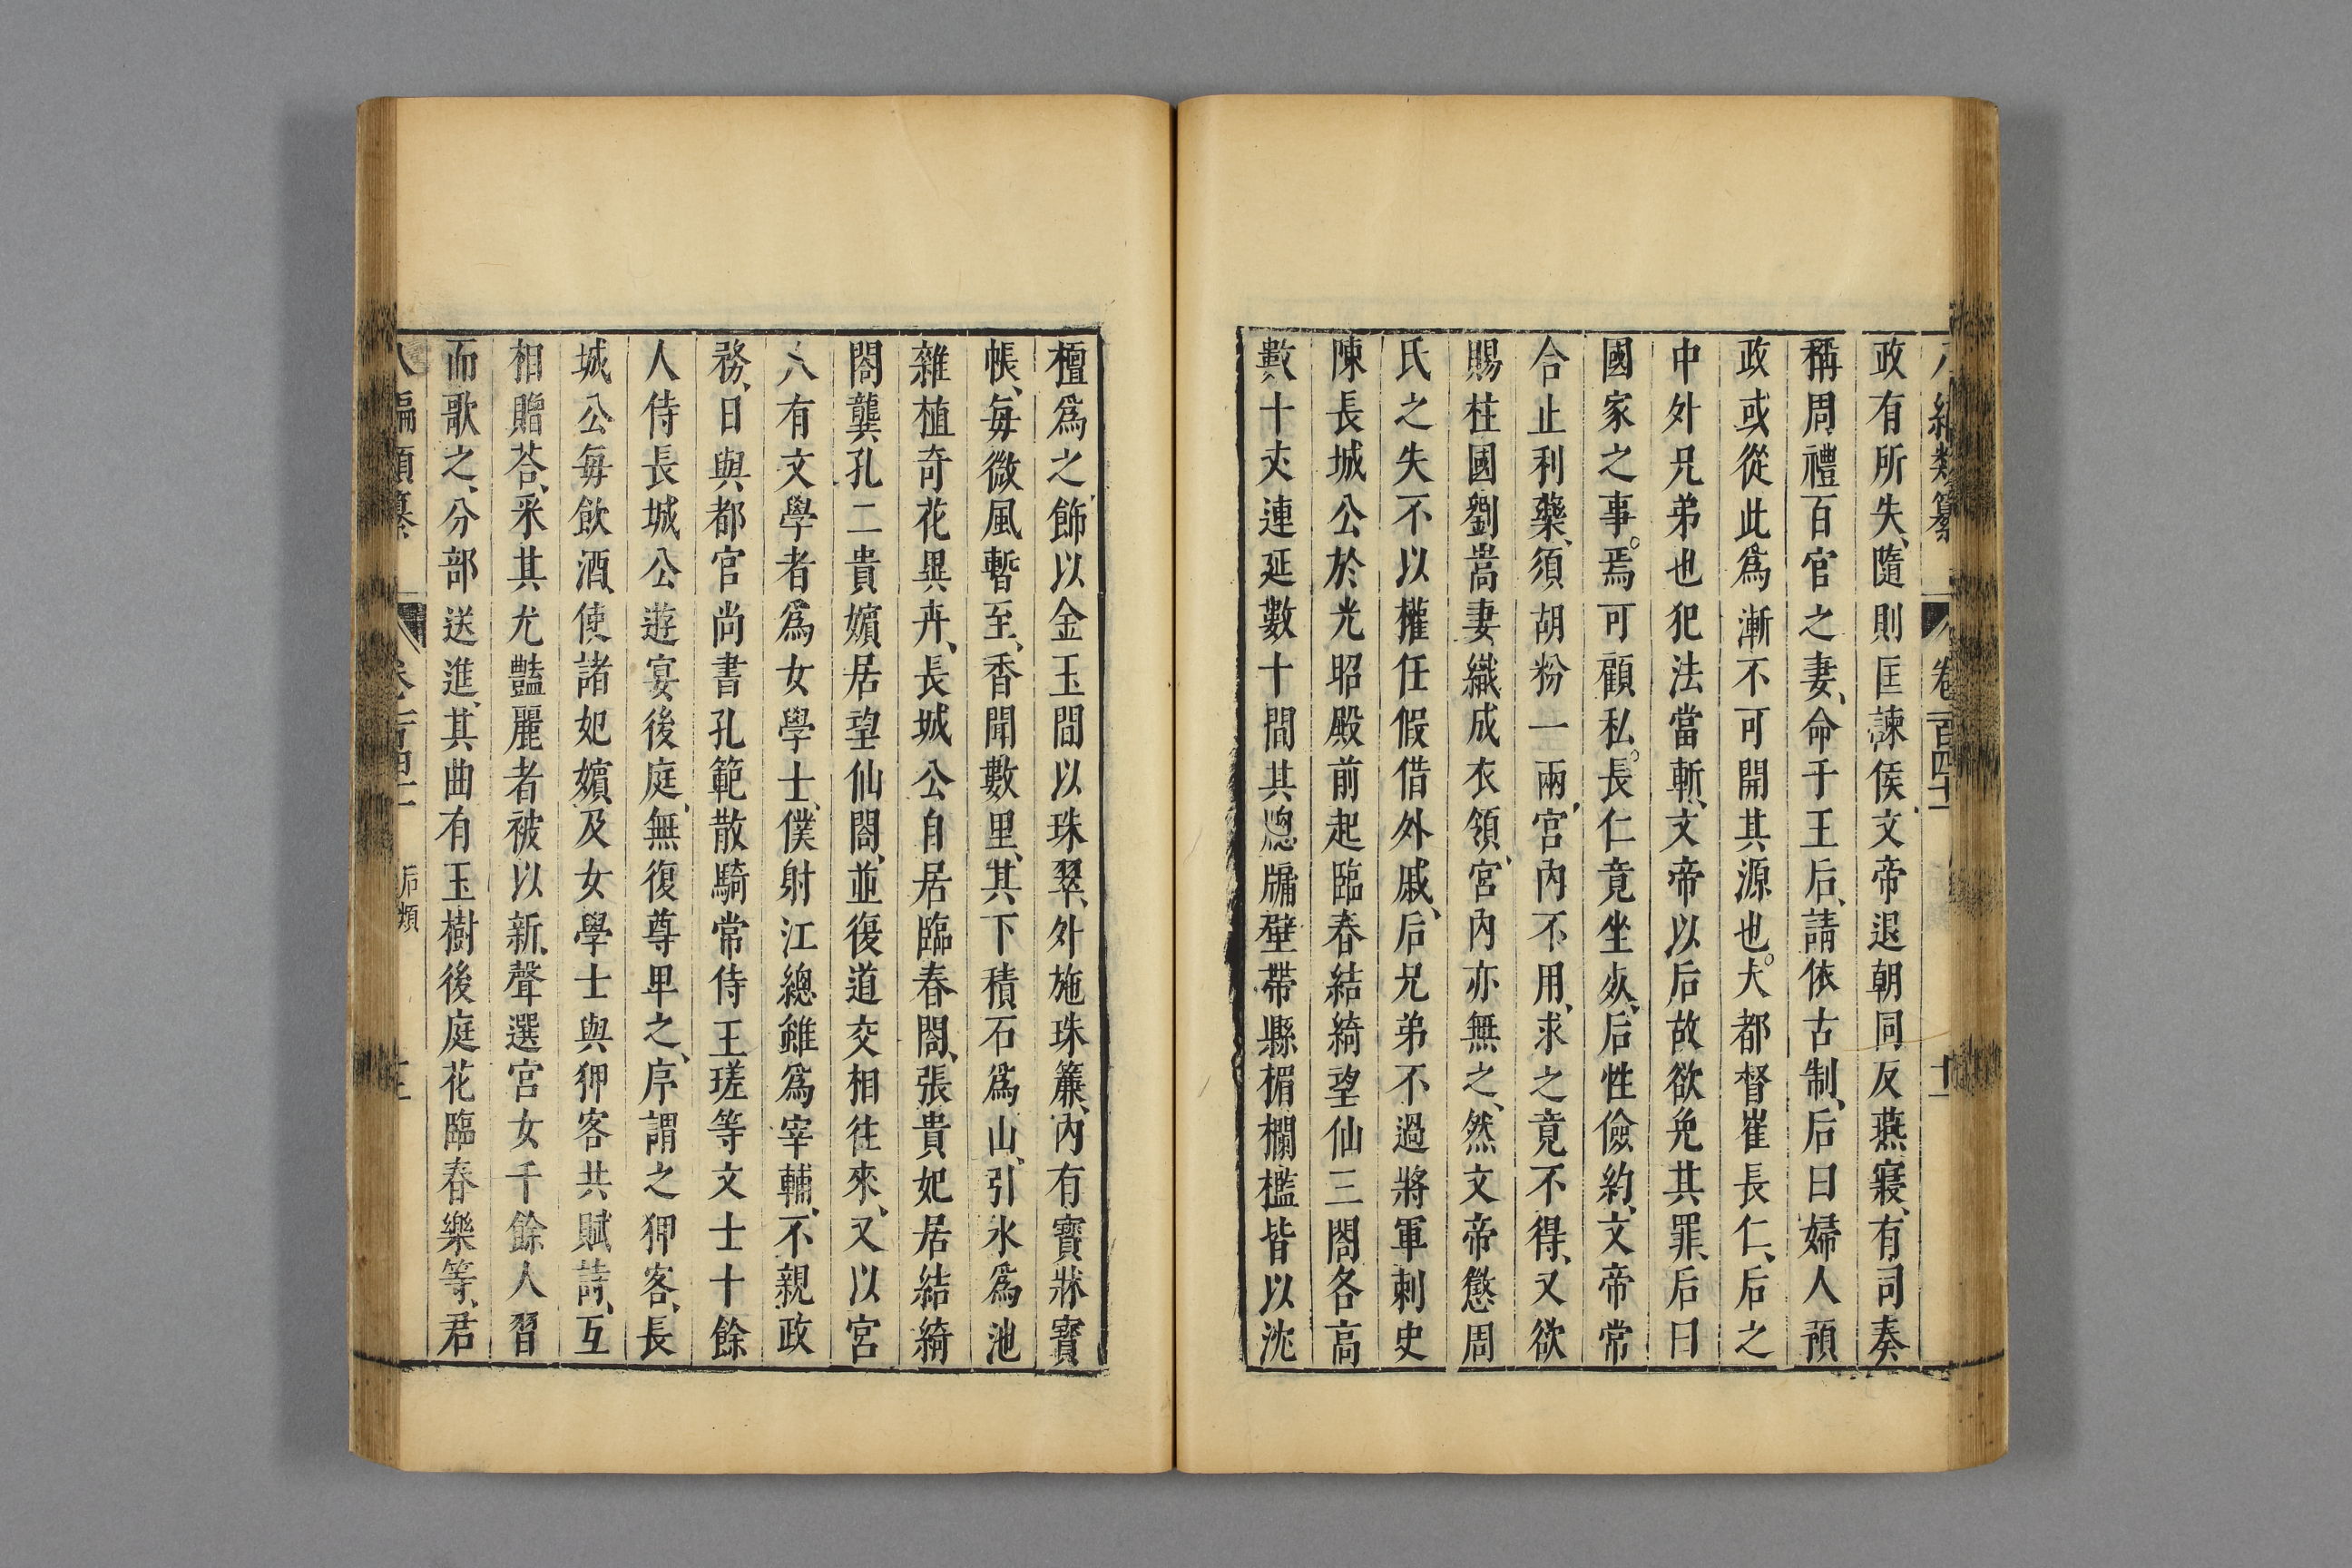 八編類纂　卷一百四十一　十一
政有所失、隨則匡諫侯、文帝退朝同反燕寢、有司奏
稱周禮百官之妻、命于王后、請依古制、后曰婦人預
政或從此爲漸不可開其源也。大都督崔長仁、后之
中外兄弟也犯法當斬、文帝以后故欲免其罪、后曰
國家之事。焉可顧私。長仁竟坐死、后性儉約、文帝常
合止利藥、須胡粉一兩、宮內不用、求之竟不得、又欲
賜柱國劉嵩妻織成衣領、宮內亦無之、然文帝懲周
氏之失不以權任假借外戚、后兄弟不過將軍刺史
陳長城公於光昭殿前起臨春結綺望仙三閣各高
數十丈連延數十間其牕牖壁帶縣楣欄檻皆以沈
檀爲之、飾以金玉間以珠翠、外施珠簾、內有寶牀寶
帳、每微風暫至、香聞數里、其下積石爲山、引水爲池
雜植奇花異卉、長城公自居臨春閣、張貴妃居結綺
閣龔孔二貴嬪居望仙閣、並復道交相往來、又以宮
人有文學者爲女學士、僕射江總雖爲宰輔、不親政
務、日與都官尚書孔範散騎常侍王瑳等文士十餘
人侍長城公遊宴後庭、無復尊卑之、序謂之狎客、長
城公每飲酒、使諸妃嬪、及女學士與狎客共賦詩、互
相贈荅、釆其尤豔麗者被以新、聲選宮女千餘人習
而歌之、分部送進、其曲有玉樹後庭花臨春樂等、君
八編類纂　卷一百四十一　后類